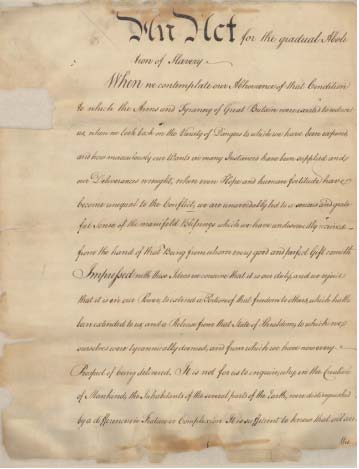 An Act for the gradual Aboli
tion of Slavery
When we contemplate our Abhorence of that Condition
to which the Arms and Tyranny of Great Britain were exerted to reduce
us, when we look back on the Variety of Dangers to which we have been exposed
and how miraculously our Wants in many Instances have been supplied and
our Deliverances wrought, when even Hope and human fortitude have
become unequal to the Conflict; we are unavoidably led to a serious and grate
ful Sense of the manifold Blessings which we have undeservedly received
from the hand of that Being from whom every good and perfect Gift cometh
Impressed with these Ideas we conceive that it is our duty, and we rejoice
that it is in our Power, to extend a Portion of that freedom to others, which hath
been extended to us; and a Release from that State of Thraldom, to which we
ourselves were tyrannically doomed, and from which we have now every
Prospect of being delivered. It is not for us to enquire, why, in the Creation
of Mankind, the Inhabitants of the several parts of the Earth, were distinguished
by a difference in Feature or Complexion. It is sufficient to know that all are
the